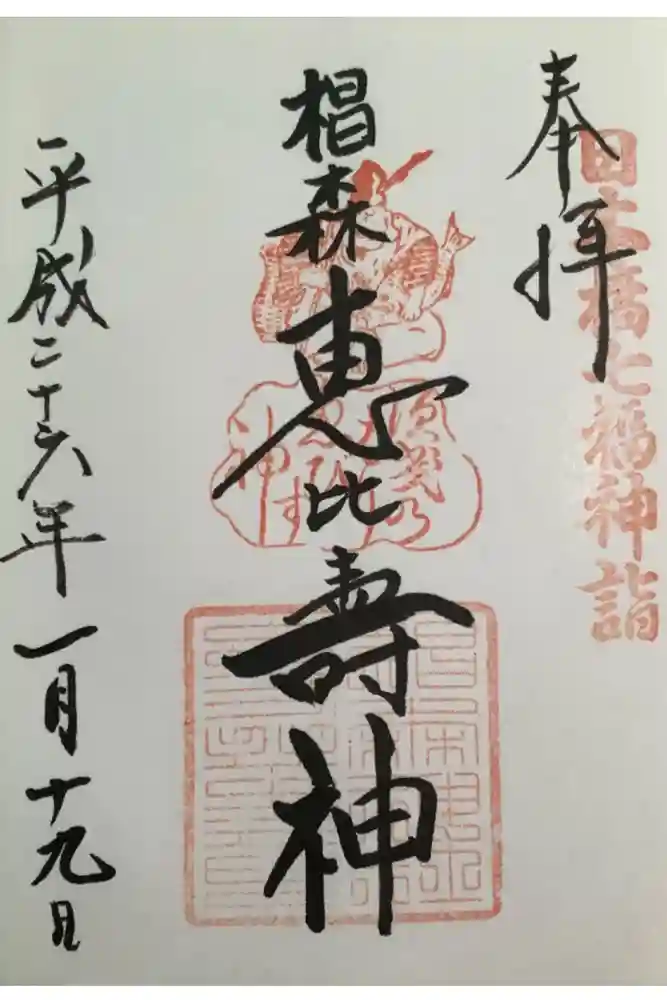 奉拝
日本橋七福神詣
椙森恵比壽神
平成二十六年一月十九日